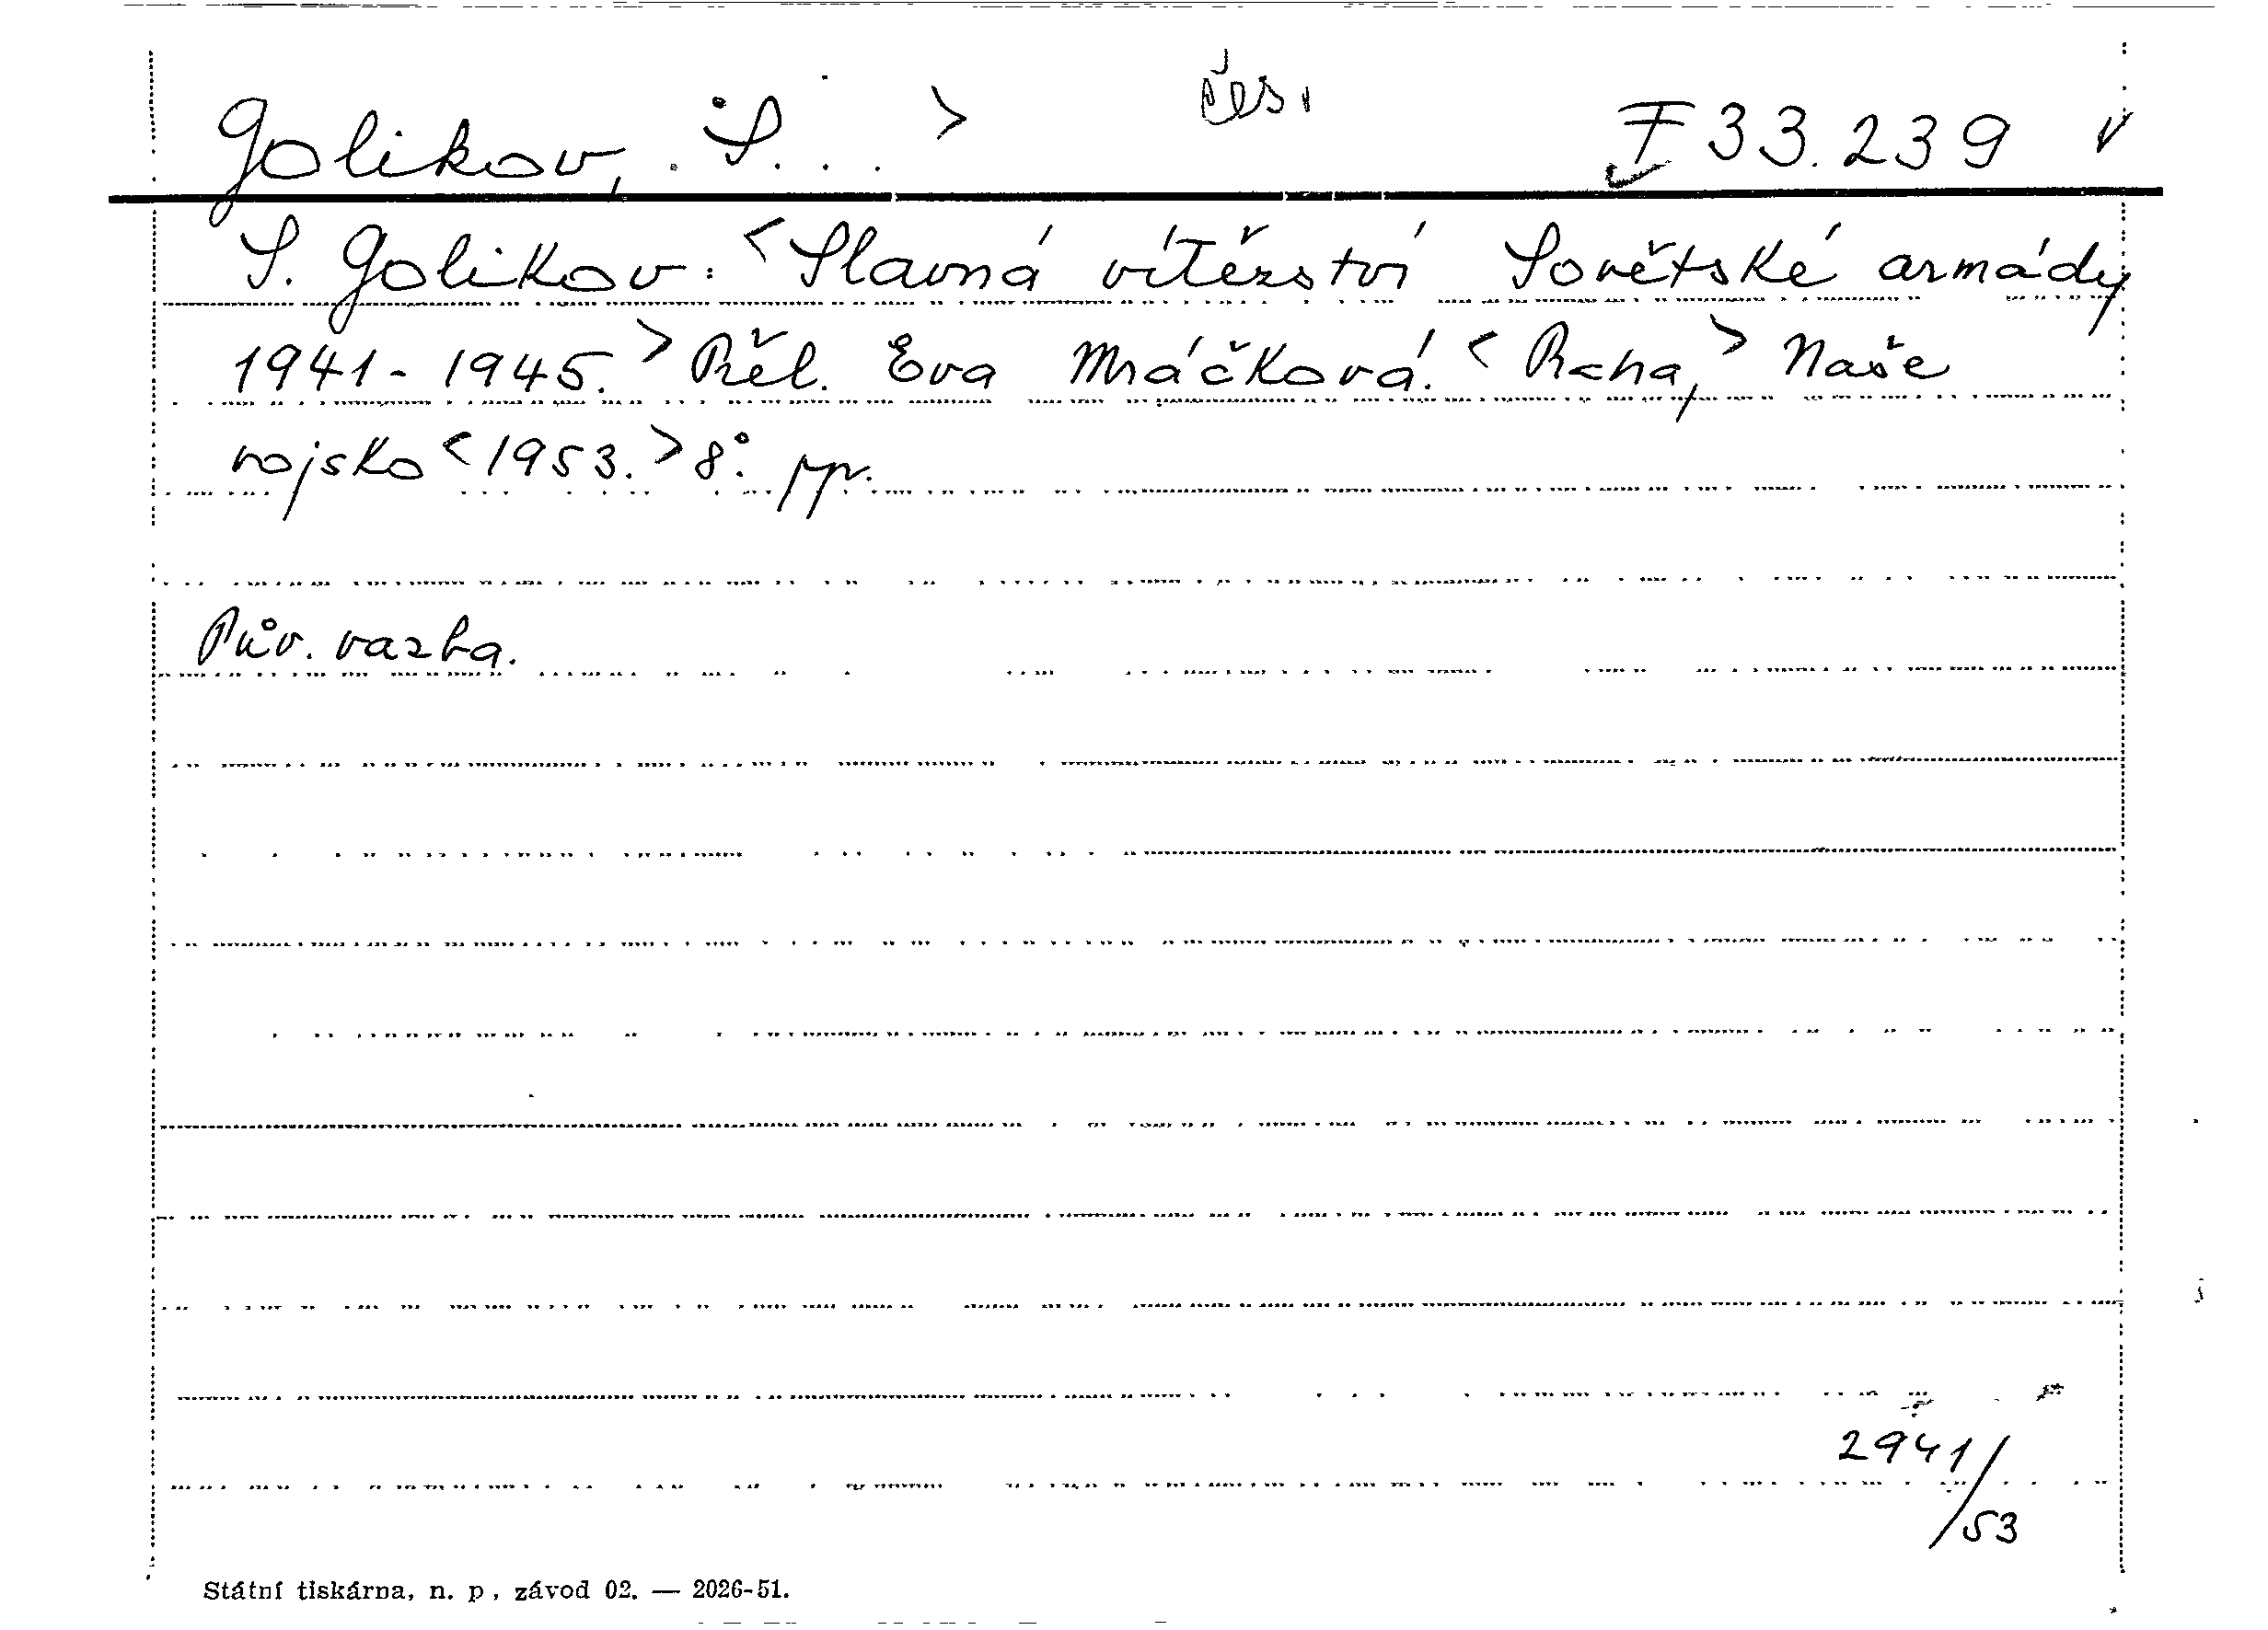 Golikov, S... > čes. I 33.239
S. Golikov: <Slavná vítězství Sovětské armády
1941-1945.> Přel. Eva Mráčková. <Praha,> Naše
vojsko <1953.> 8°. pp.
Pův. vazba.
2941/53
Státní tiskárna, n. p., závod 02. — 2026-51.